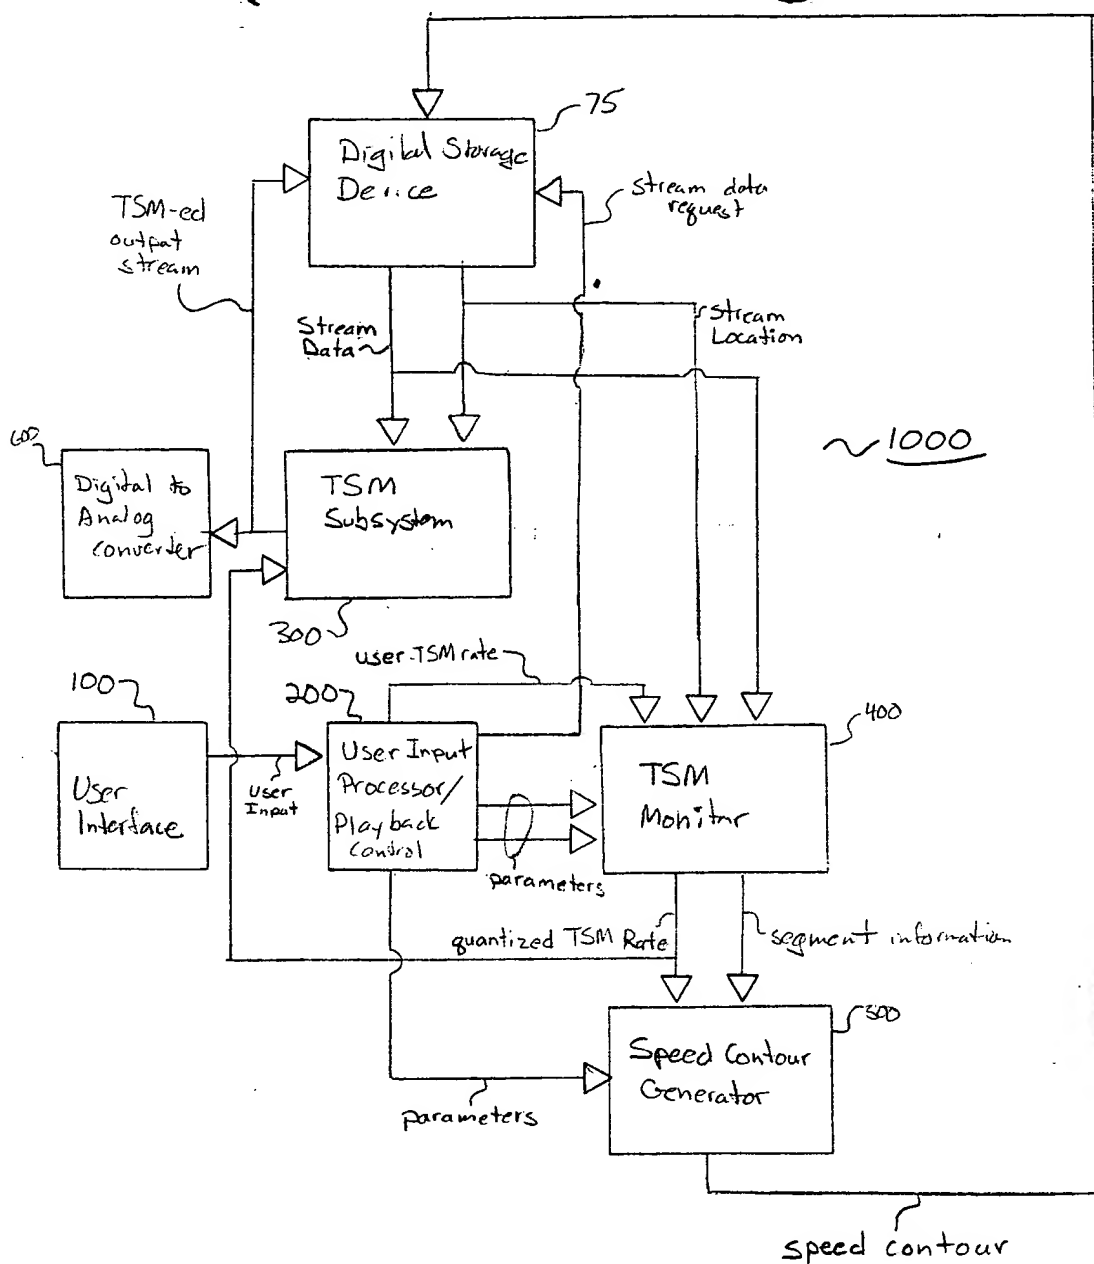 75
Digital Storage
Device
stream data
request
TSM-ed
output
stream
Stream
Data
Stream
Location
600
Digital to
Analog
Converter
TSM
Subsystem
1000
300
user-TSM rate
100
200
400
User
Interface
User
Input
User Input
Processor/
Playback
Control
TSM
Monitor
parameters
quantized TSM Rate
segment information
500
Speed Contour
Generator
parameters
speed contour